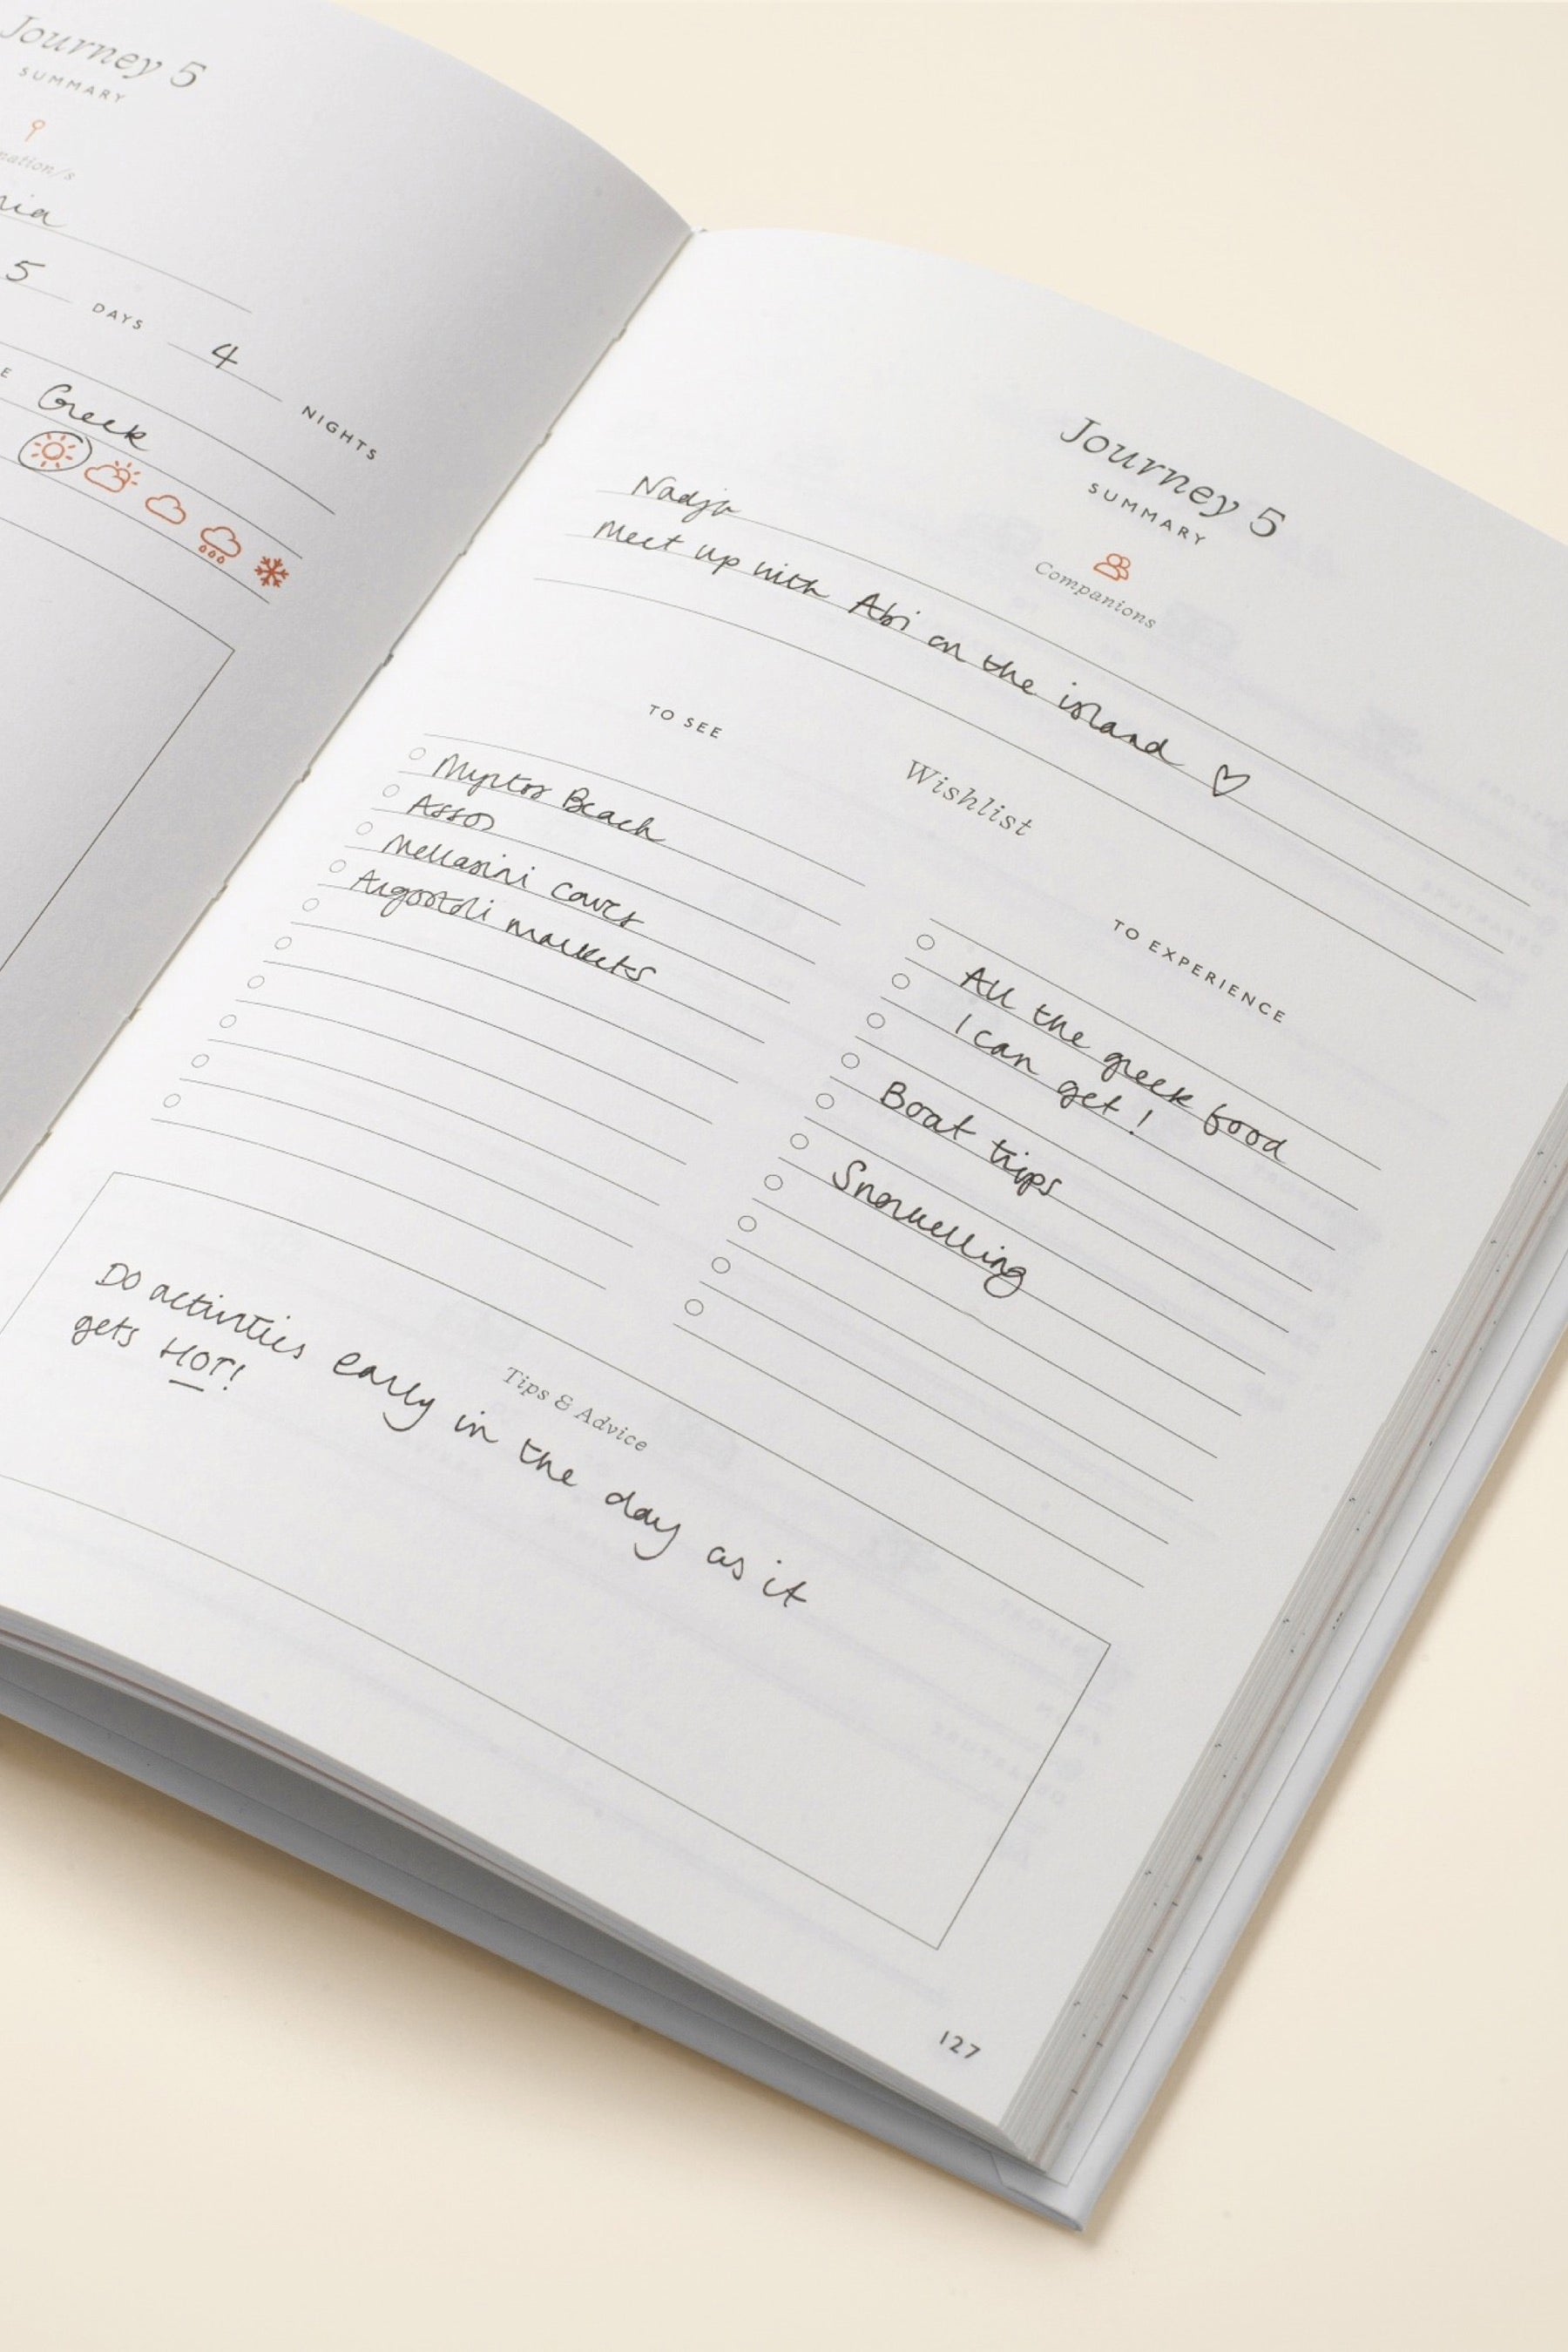 Journey 5
SUMMARY
nation/s
nia
5 DAYS 4 NIGHTS
E Greek
Journey 5
SUMMARY
Companions
Nadja
Meet up with Abi on the island ♡
Wishlist
TO SEE
Myrtos Beach
Assos
Mellasini caves
Argostoli markets
TO EXPERIENCE
All the greek food
I can get!
Boat trips
Snorkelling
Tips & Advice
Do activities early in the day as it
gets HOT!
127